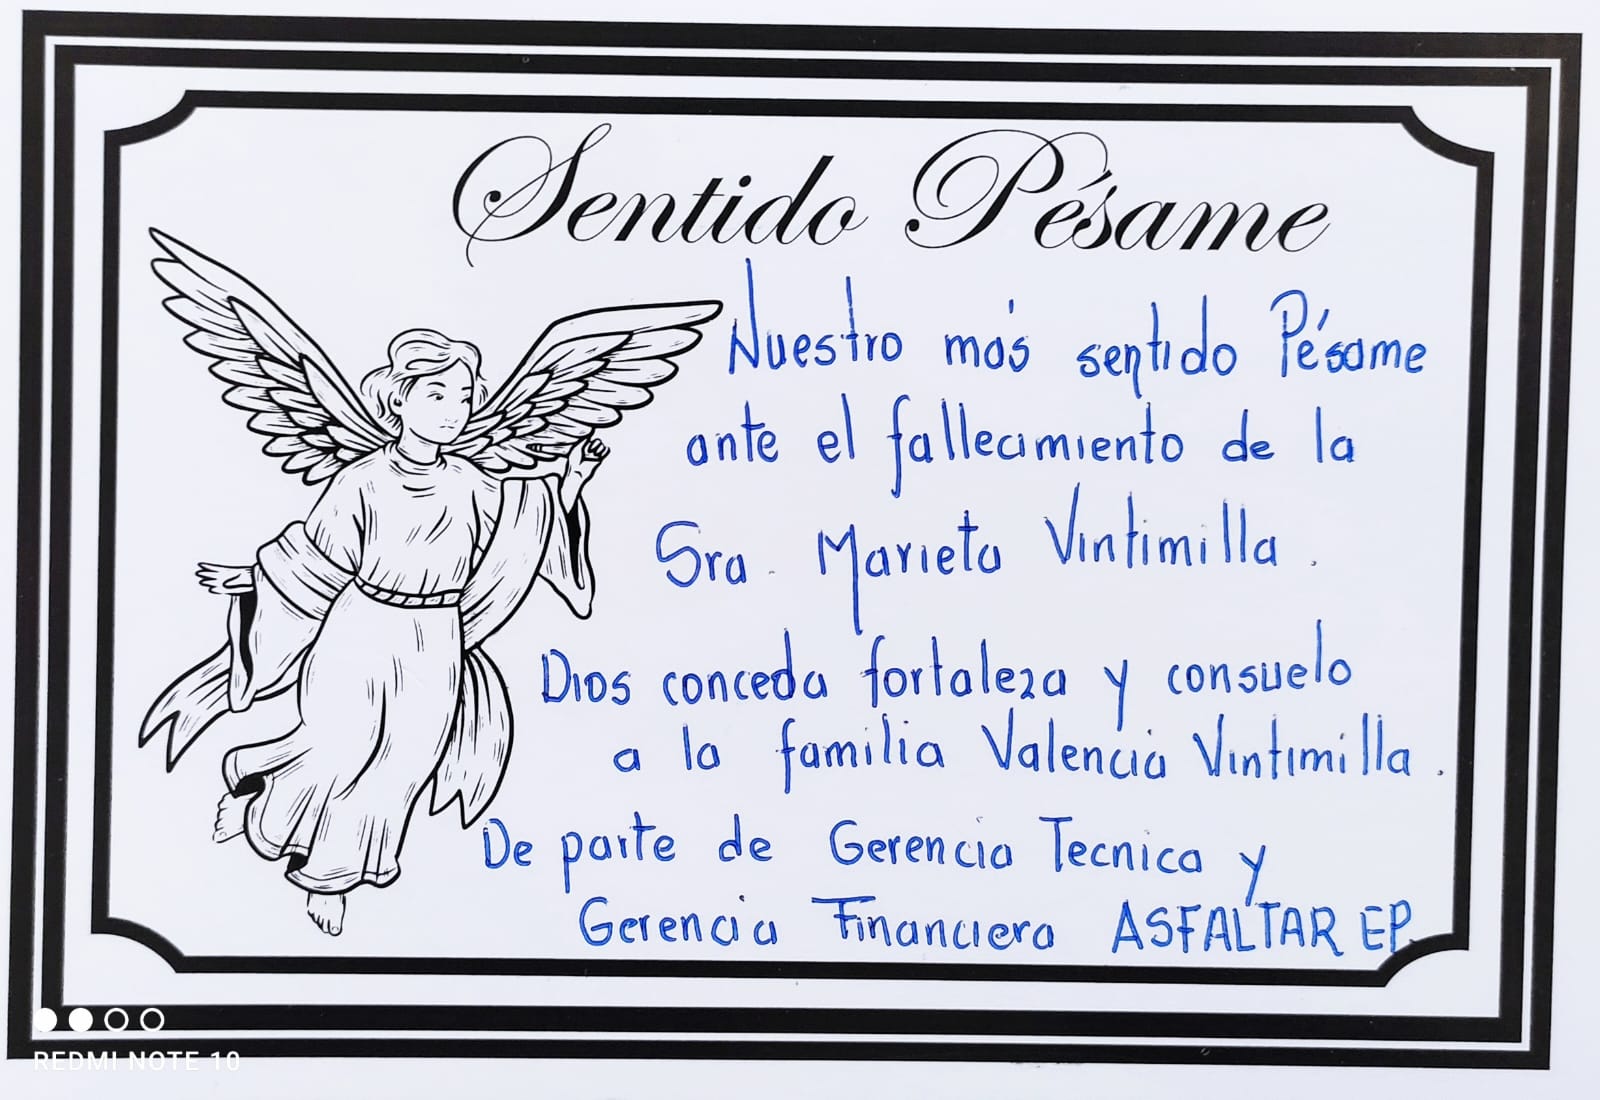 Sentido Pésame
Nuestro más sentido Pésame
ante el fallecimiento de la
Sra. Marieta Vintimilla.
Dios conceda fortaleza y consuelo
a la familia Valencia Vintimilla.
De parte de Gerencia Tecnica y
Gerencia Financiera ASFALTAR EP.
REDMI NOTE 10